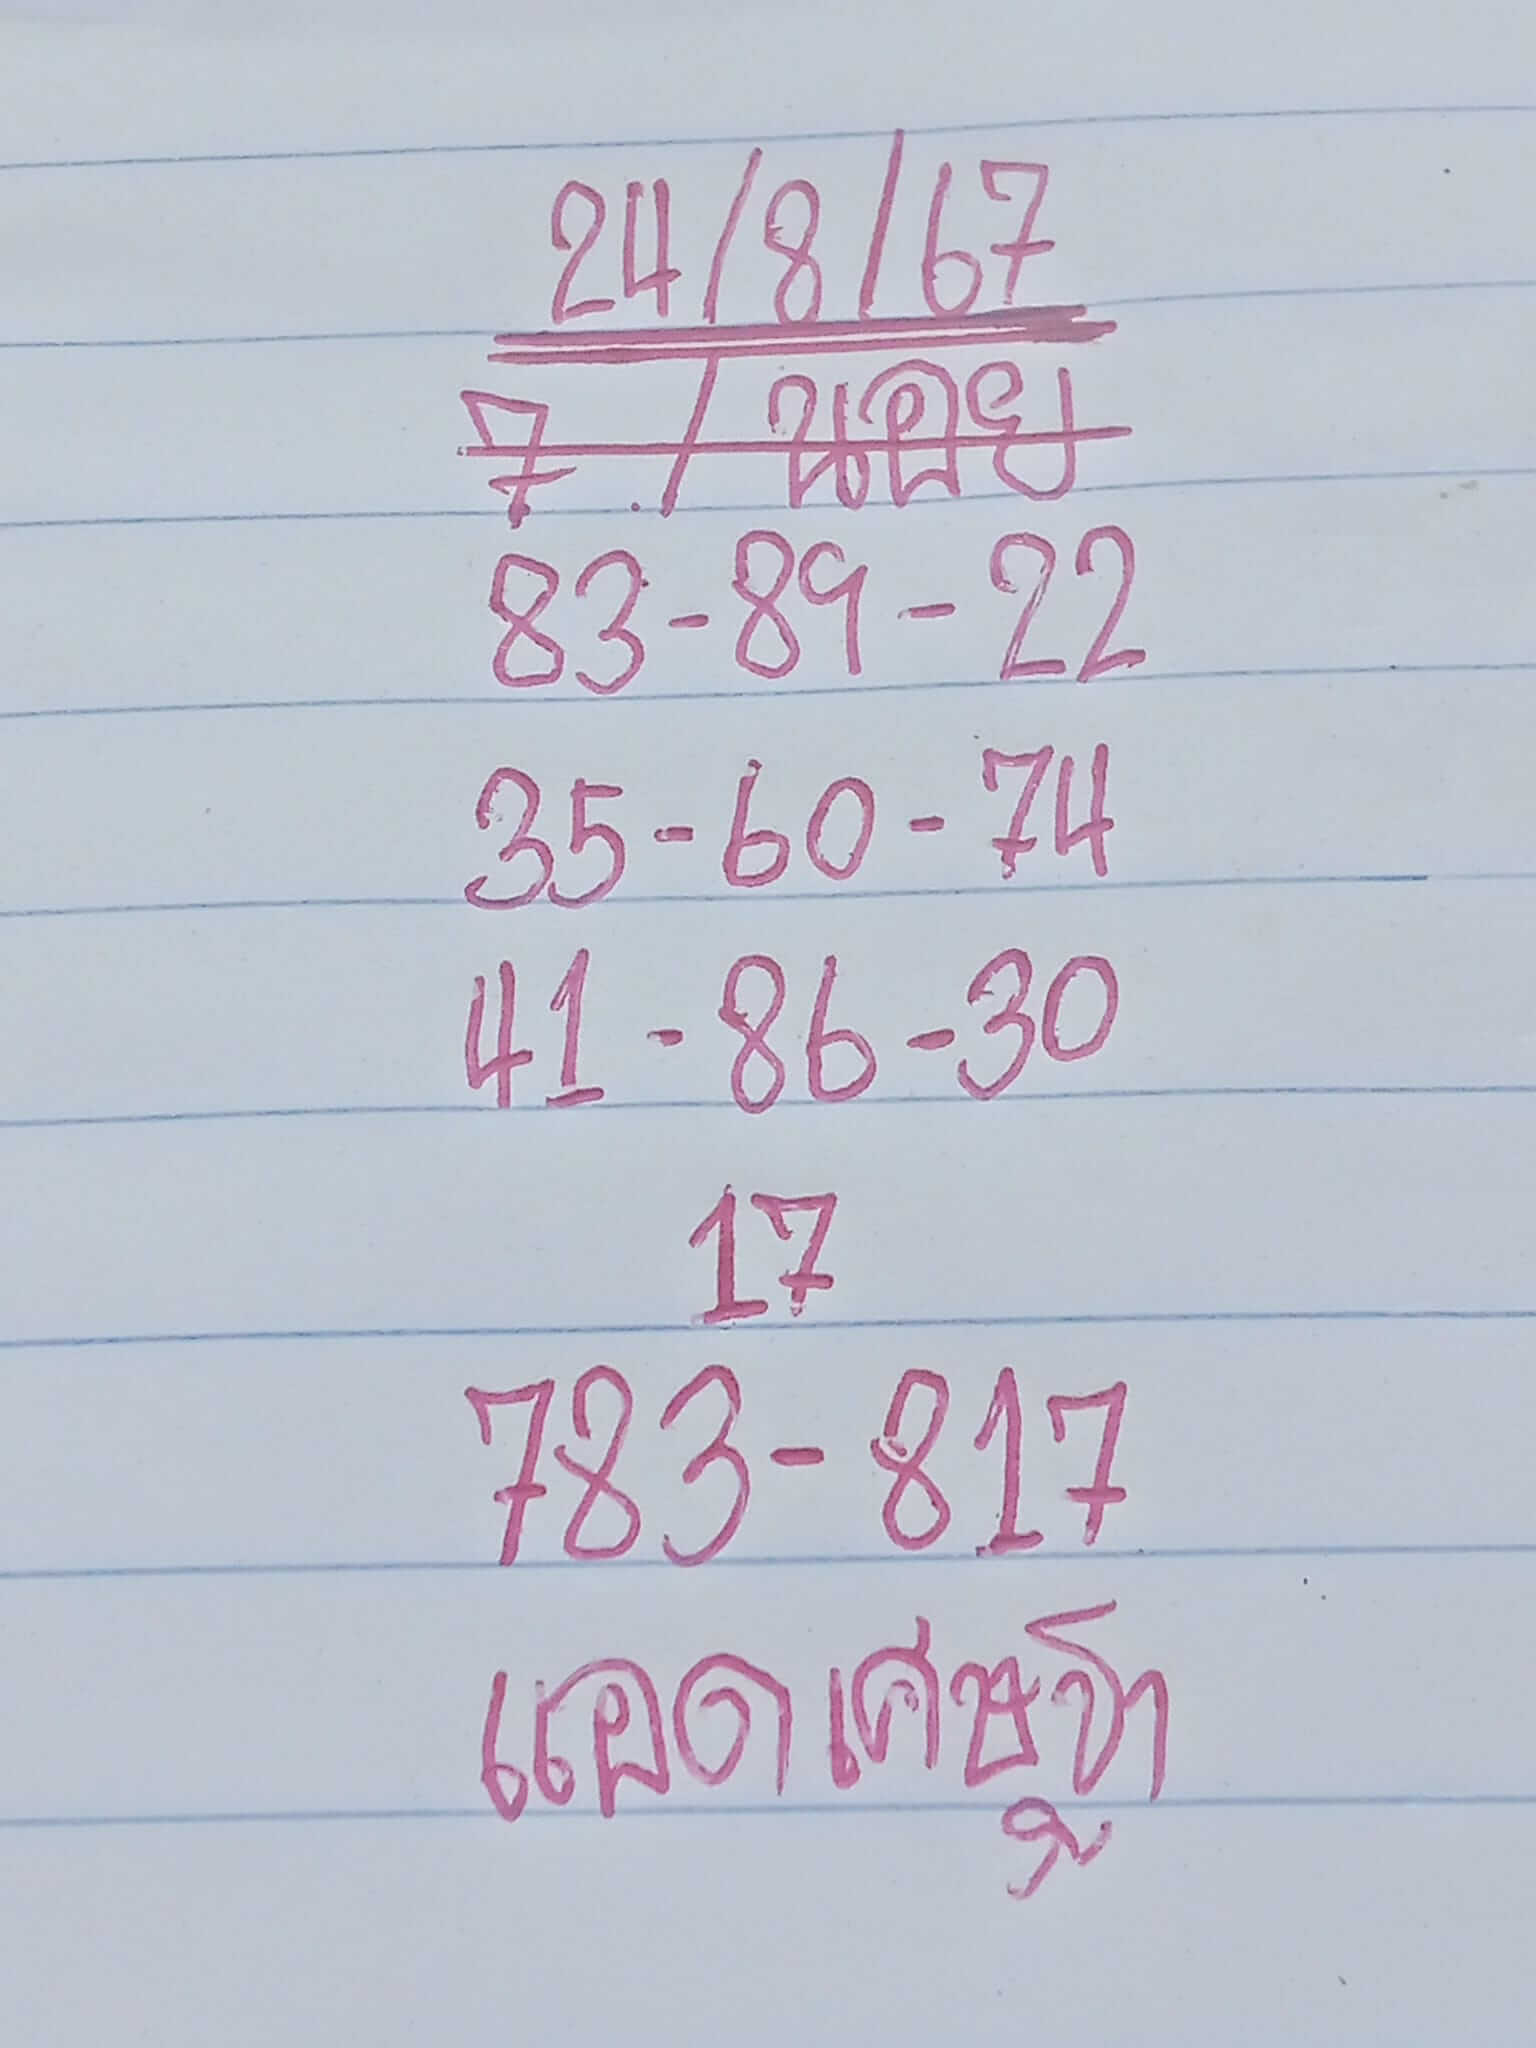 24/8/67
7 / นอย
83-89-22
35-60-74
41-86-30
17
783-817
แอด เศษฐี